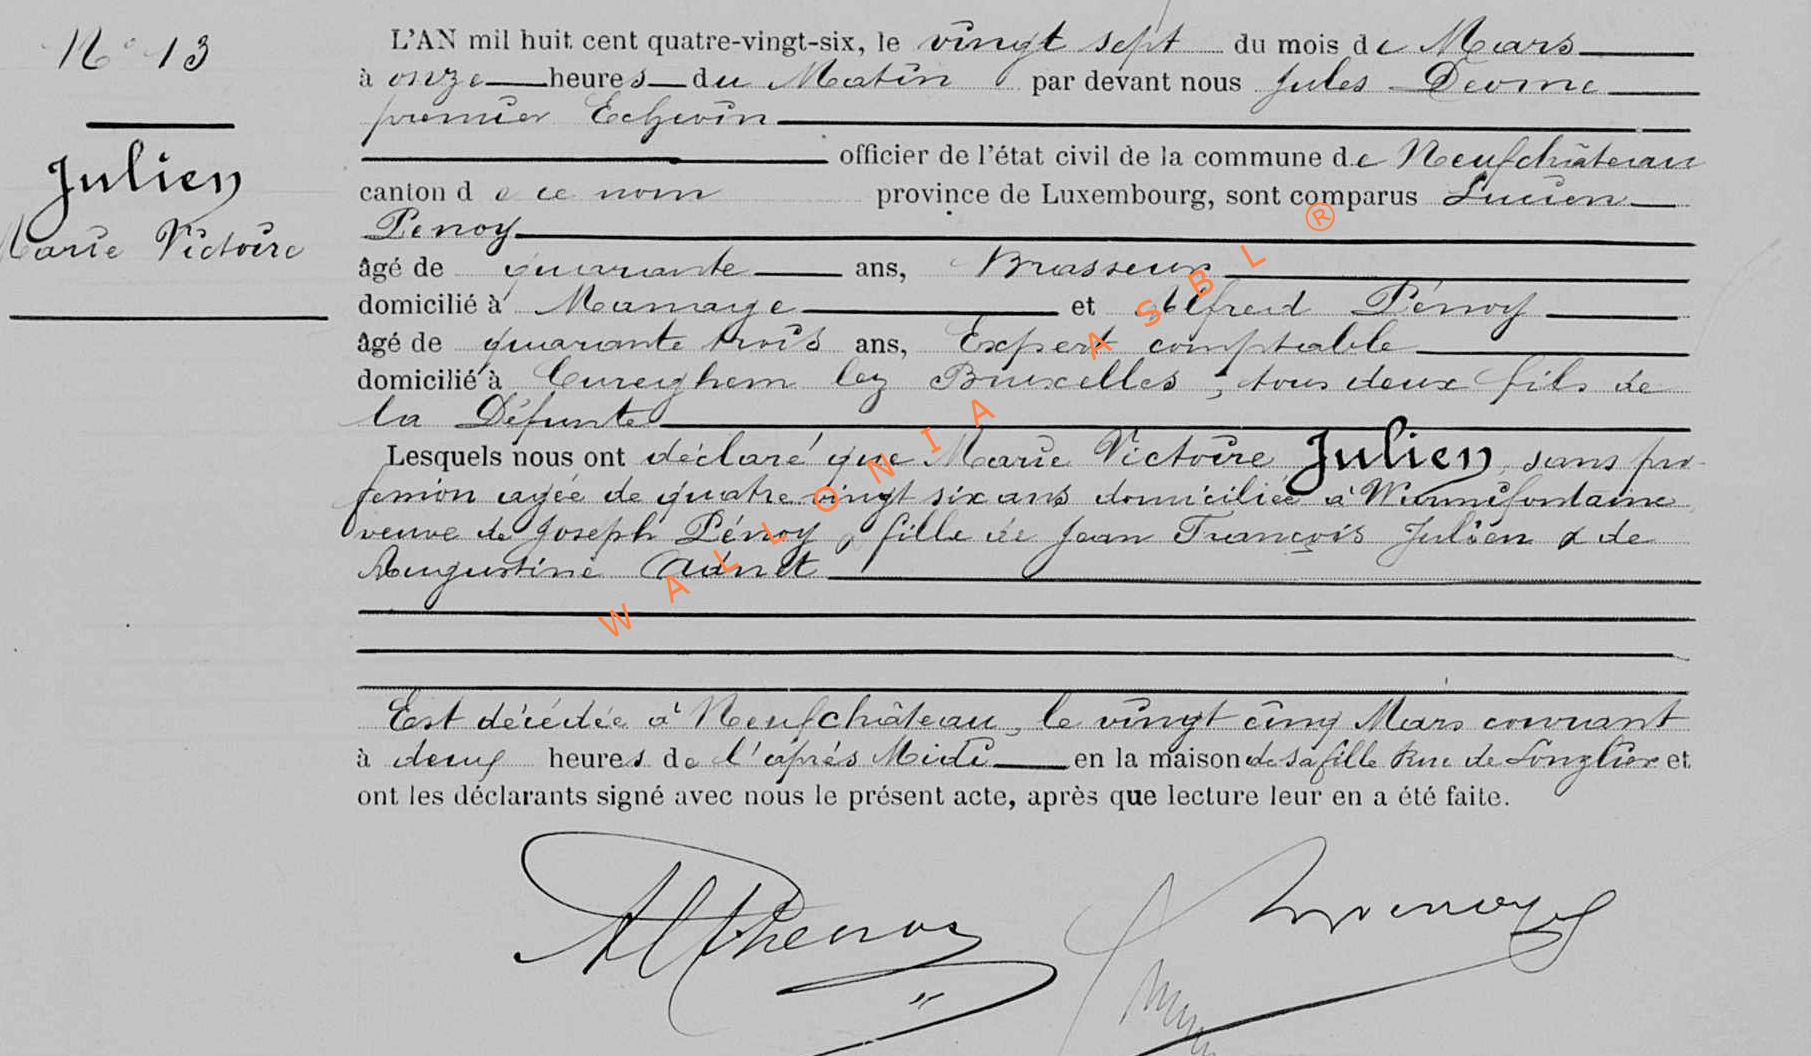 N° 13
Julien
Marie Victoire
L'AN mil huit cent quatre-vingt-six, le vingt sept du mois de Mars
à onze heures du Matin par devant nous Jules
premier Echevin
officier de l'état civil de la commune de Neufchâteau
canton de ce nom province de Luxembourg, sont comparus Lucien
Penoy
âgé de quarante ans, Brasseur
domicilié à et Alfred Pénoy
âgé de quarante trois ans, Expert comptable
domicilié à Cureghem lez Bruxelles, tous deux fils de
la Défunte
Lesquels nous ont déclaré que Marie Victoire Julien, sans pro-
fession agée de quatre vingt six ans domiciliée à Warmifontaine
veuve de Joseph Pénoy, fille de Jean François Julien & de
Augustine Adnet
Est décédée à Neufchâteau, le vingt cinq Mars courant
à deux heures de l'après Midi en la maison de sa fille Rue de Longlier et
ont les déclarants signé avec nous le présent acte, après que lecture leur en a été faite.
WALLONIA ASBL ®